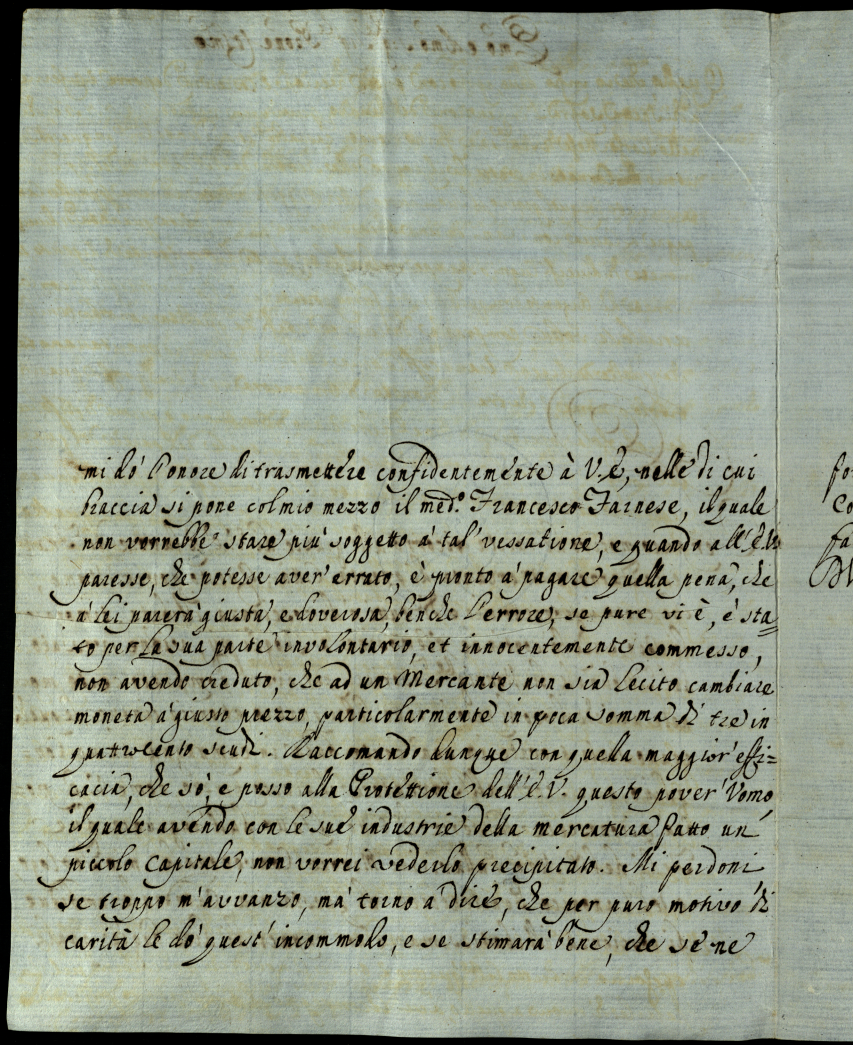 mi dó l'onore di trasmettere confidentemente à V. E., nelle di cui
braccia si pone col mio mezzo il med.º Francesco Farnese, il quale
non vorrebbe stare più soggetto a tal' vessatione, e quando all' E. V.
paresse, che potesse aver' errato, è pronto à pagare quella pena, che
à lei parerà giusta, e doverosa, benche l'errore, se pure vi è, è sta=
to per la sua parte involontario, et innocentemente commesso,
non avendo creduto, che ad un Mercante non sia lecito cambiare
moneta a giusto prezzo, particolarmente in poca somma di tre in
quattrocento scudi. Raccomando dunque con quella maggior' effi=
cacia, che sò, e posso alla Protettione dell' E. V. questo pover' Uomo,
il quale avendo con le sue industrie della mercatura fatto un
piccolo capitale, non vorrei vederlo precipitato. Mi perdoni
se troppo m'avvanzo, mà torno a dire, che per puro motivo di
carità le dó quest' incommodo, e se stimarà bene, che se ne